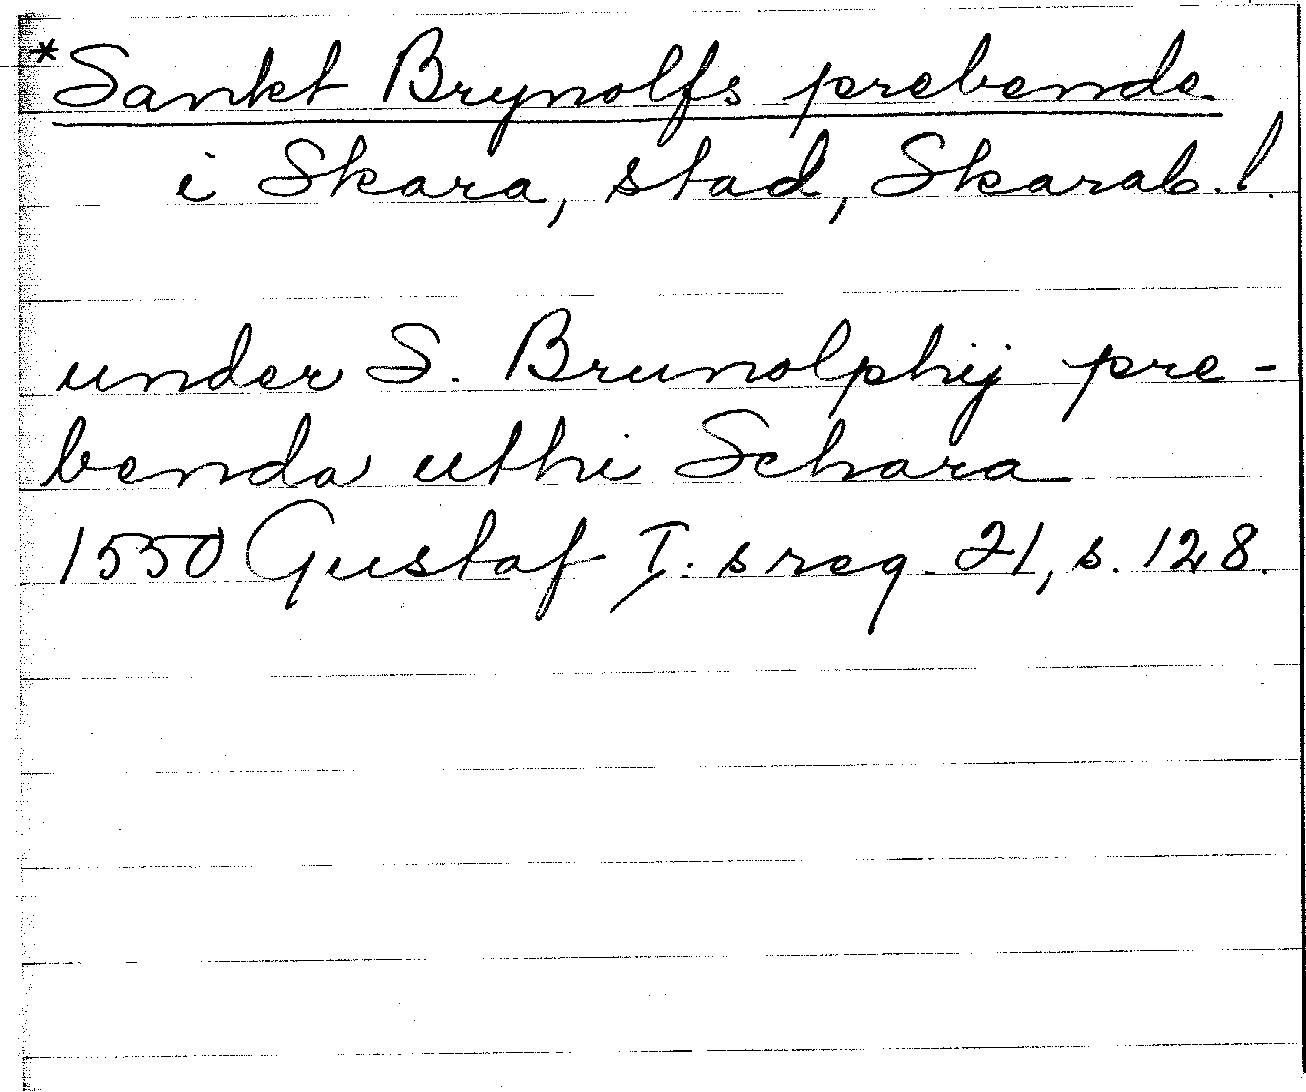 *Sankt Brynolfs prebende
i Skara, stad, Skarab. l.
under S. Brunolphij pre-
benda uthi Schara
1550 Gustaf I. s reg. 21, s. 128.